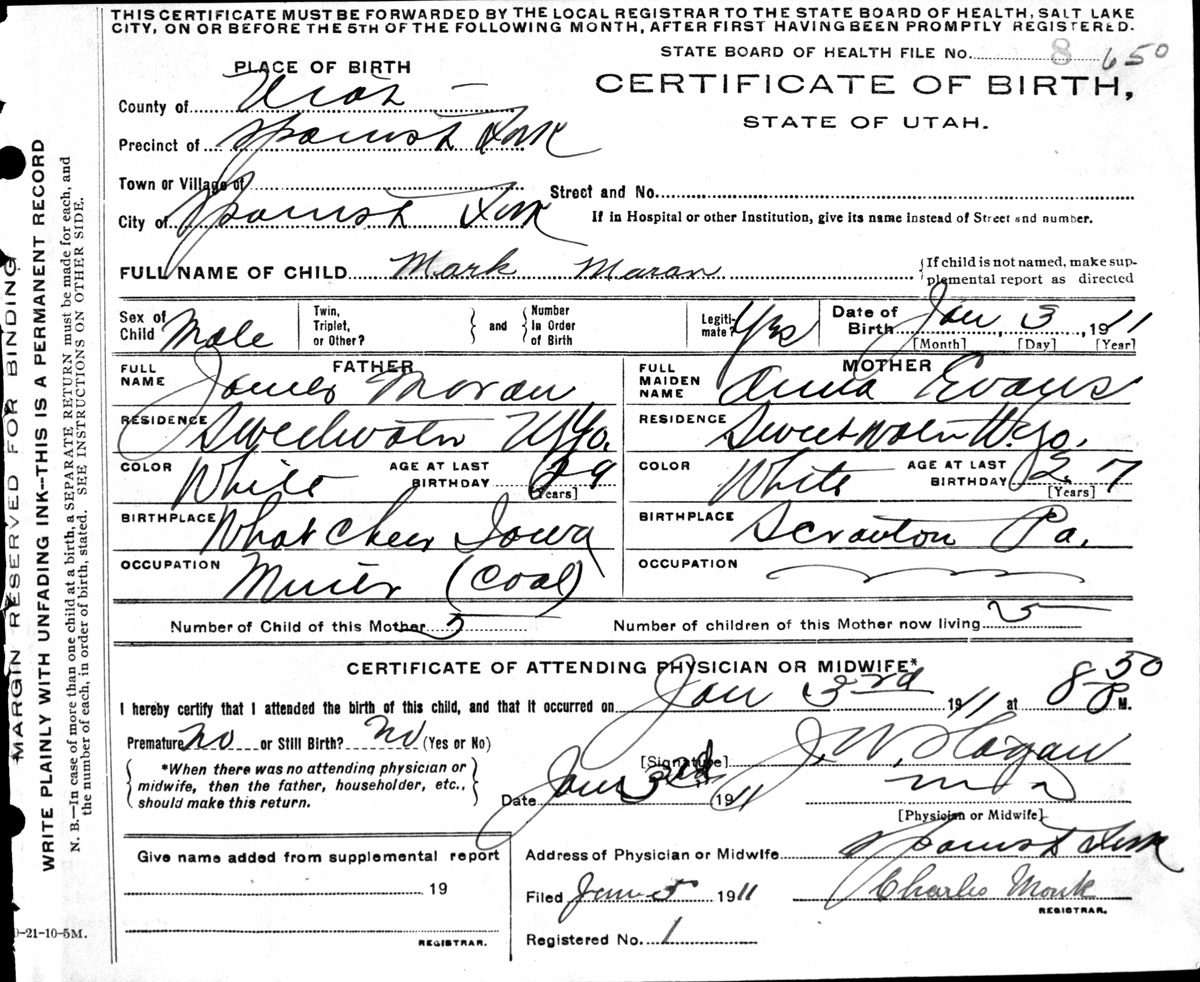 THIS CERTIFICATE MUST BE FORWARDED BY THE LOCAL REGISTRAR TO THE STATE BOARD OF HEALTH, SALT LAKE
CITY, ON OR BEFORE THE 5TH OF THE FOLLOWING MONTH, AFTER FIRST HAVING BEEN PROMPTLY REGISTERED.
STATE BOARD OF HEALTH FILE No. 8 650
PLACE OF BIRTH
CERTIFICATE OF BIRTH,
STATE OF UTAH.
County of Utah
Precinct of Spanish Fork
Town or Village of
Street and No.
City of Spanish Fork
If in Hospital or other Institution, give its name instead of Street and number.
FULL NAME OF CHILD Mark Maran
{If child is not named, make sup-
plemental report as directed
Sex of Child Male
Twin, Triplet, or Other? } and { Number In Order of Birth
Legiti-mate? Yes
Date of Birth Jan 3, 1911
[Month] [Day] [Year]
FATHER
FULL NAME James Moran
RESIDENCE Sweetwater Wyo.
COLOR White AGE AT LAST BIRTHDAY 29
[Years]
BIRTHPLACE What Cheer Iowa
OCCUPATION Miner (Coal)
MOTHER
FULL MAIDEN NAME Anna Evans
RESIDENCE Sweetwater Wyo.
COLOR White AGE AT LAST BIRTHDAY 27
[Years]
BIRTHPLACE Scranton Pa.
OCCUPATION
Number of Child of this Mother 5 Number of children of this Mother now living 5
CERTIFICATE OF ATTENDING PHYSICIAN OR MIDWIFE*
I hereby certify that I attended the birth of this child, and that it occurred on Jan 3rd 1911 at 8 50 P M.
Premature No or Still Birth? No (Yes or No)
*When there was no attending physician or
midwife, then the father, householder, etc.,
should make this return.
[Signature] J. W. Hagan
Date Jan 3rd 1911
M D
[Physician or Midwife]
Give name added from supplemental report
19
REGISTRAR.
Address of Physician or Midwife Spanish Fork
Filed Jan 5 1911 Charles Monk
REGISTRAR.
Registered No. 1
MARGIN RESERVED FOR BINDING
WRITE PLAINLY WITH UNFADING INK--THIS IS A PERMANENT RECORD
N. B.—In case of more than one child at a birth a SEPARATE RETURN must be made for each, and
the number of each, in order of birth, stated. SEE INSTRUCTIONS ON OTHER SIDE.
-21-10-5M.